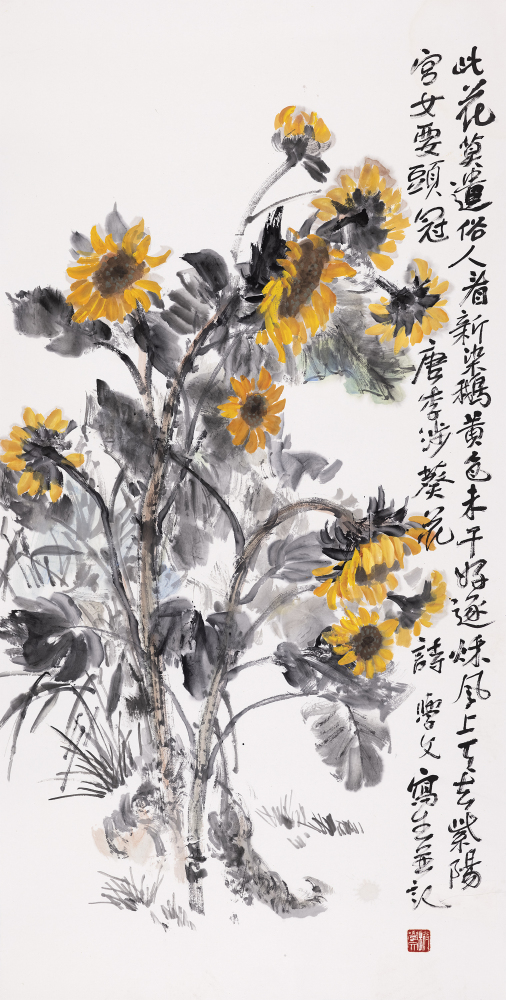 此花莫遣俗人看新染鵝黄色未干好逐秌風上天去紫陽
宮女要頭冠 唐李涉葵花詩 父寫生並記